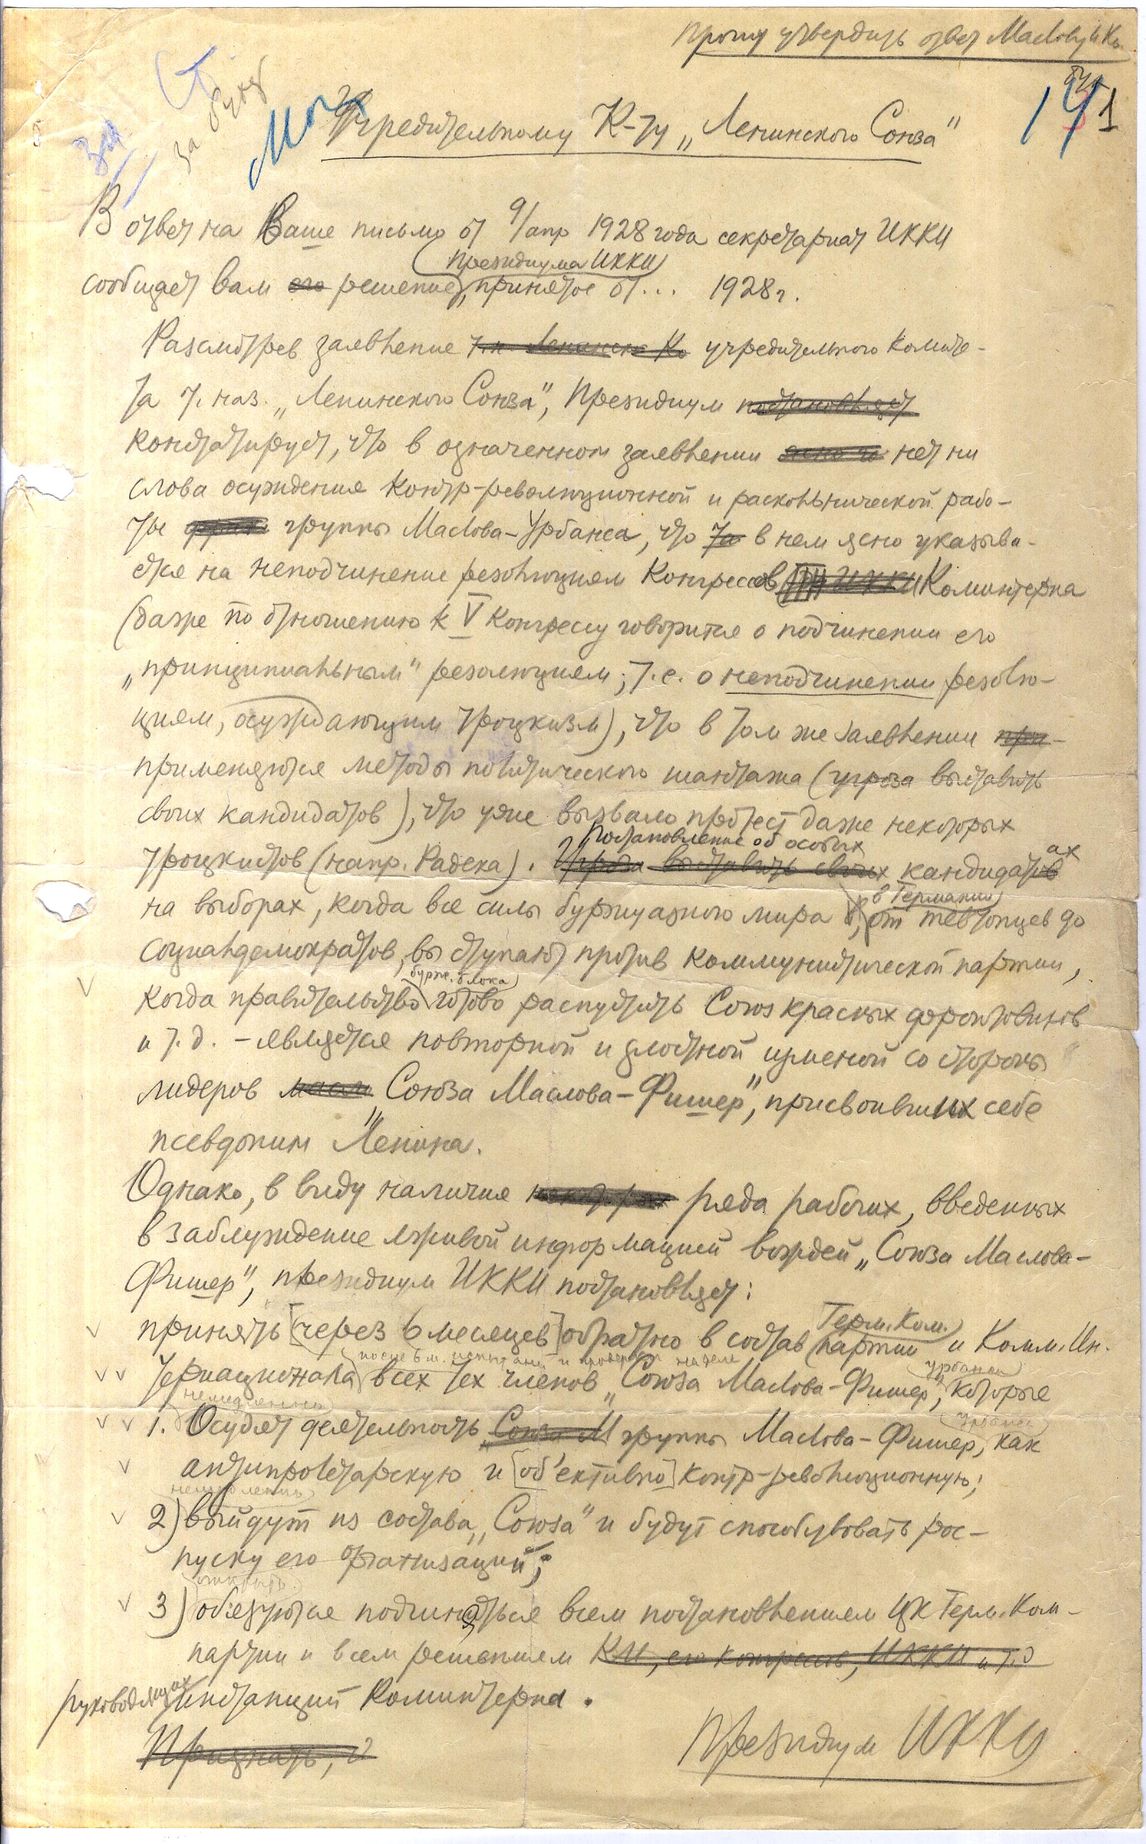 Прошу утвердить ответ Маслову и Ко.
За
за Бух
141
Учредительному К-ту „Ленинского Союза"
В ответ на Ваше письмо от 9/апр 1928 года секретариат ИККИ
Президиума ИККИ
сообщает вам его решение, принятое от... 1928 г.
Рассмотрев заявление учредительного комите-
та т. наз. „Ленинского Союза", Президиум постановляет
констатирует, что в означенном заявлении нет ни
слова осуждения контр-революционной и раскольнической рабо-
ты группы Маслова-Урбанса, что в нем ясно указыва-
ется на неподчинение резолюциям Конгрессов ИККИ Коминтерна
(даже по отношению к V Конгрессу говорится о подчинении его
„принципиальным" резолюциям, т.е. о неподчинении резолю-
циям, осуждающим троцкизм), что в том же заявлении при-
применяются методы политического шантажа (угроза выставить
своих кандидатов), что уже вызвало протест даже некоторых
Постановление об особых
троцкистов (напр. Радека). Угроза выставить своих кандидатов ах
в Германии
на выборах, когда все силы буржуазного мира, от тевтонцев до
социалдемократов, выступают против коммунистической партии,
бурж. блока
когда правительство готово распустить Союз красных фронтовиков
и т.д. – является повторной и злостной изменой со стороны
лидеров „Союза Маслова-Фишер", присвоивших себе
псевдоним Ленина.
Однако, в виду наличия ряда рабочих, введенных
в заблуждение лживой информацией вождей „Союза Маслова-
Фишер", президиум ИККИ постановляет:
Герм. Ком.
принять [через 6 месяцев] обратно в состав партии и Комм. Ин-
после 6 м. испытан. и проверки на деле
Урбанса
тернационала всех тех членов „Союза Маслова-Фишер", которые
немедленно
Урбанса
1. Осудят деятельность „Союза М группы Маслова-Фишер, как
антипролетарскую и [об'ективно] контр-революционную;
немедленно
2) выйдут из состава „Союза" и будут способствовать рос-
пуску его организации;
3) обязуются подчиняться всем постановлениям ЦК Герм. Ком-
партии и всем решениям КИ, его конгрессов, ИККИ и т.д
руководящих инстанций Коминтерна.
Признать, ч
Президиум ИККИ